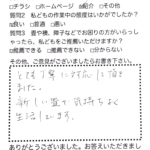 □チラシ □ホームページ ☑紹介 □その他
質問2 私どもの作業中の態度はいかがでしたか?
☑良い □普通 □悪い
質問3 畳や襖、障子などでお困りの方がいらっし
ゃったら、私どもをご推薦いただけますか?
☑推薦できる □推薦できない □分からない
その他、ご意見がございましたらお書き下さい。
とても丁寧に対応して頂き
ました。
新しい畳で気持ちよく
生活しています。
ありがとうございました。お答えいただきまし